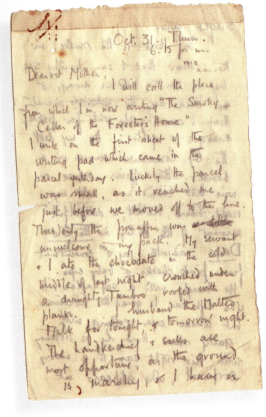 Oct. 31. Thurs.
6.15 p.m.
1918
Dearest Mother,
I will call the place
from which I'm now writing "The Smoky
Cellar of the Forester's House".
I write on the first sheet of the
writing pad which came in the
parcel yesterday. Luckily the parcel
was small, as it reached me
just before we moved off to the line.
Thus only the paraffin was
unwelcome in my pack. My servant
& I ate the chocolate in the cold
middle of last night crouched under
a draughty Tamboo, roofed with
planks. I husband the Malted
Milk for tonight, & tomorrow night.
The handkerchief & socks are
most opportune, as the ground
is marshy, & I have a